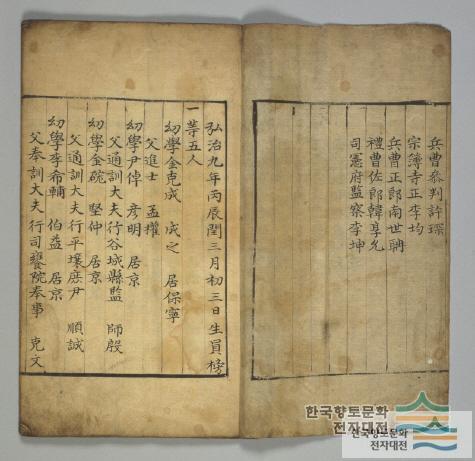 兵曹參判許琛
宗簿寺正李均
兵曹正郎南世聃
禮曹佐郎韓亨允
司憲府監察李坤
弘治九年丙辰閏三月初三日生員榜
一等五人
幼學金克成 成之 居保寧
父進士 孟權
幼學尹倬 彦明 居京
父通訓大夫行谷城縣監 師殷
幼學金碗 堅仲 居京
父通訓大夫行平壤庶尹 順誠
幼學李希輔 伯益 居京
父奉訓大夫行司饔院奉事 克文
한국향토문화
전자대전
한국향토문화
전자대전